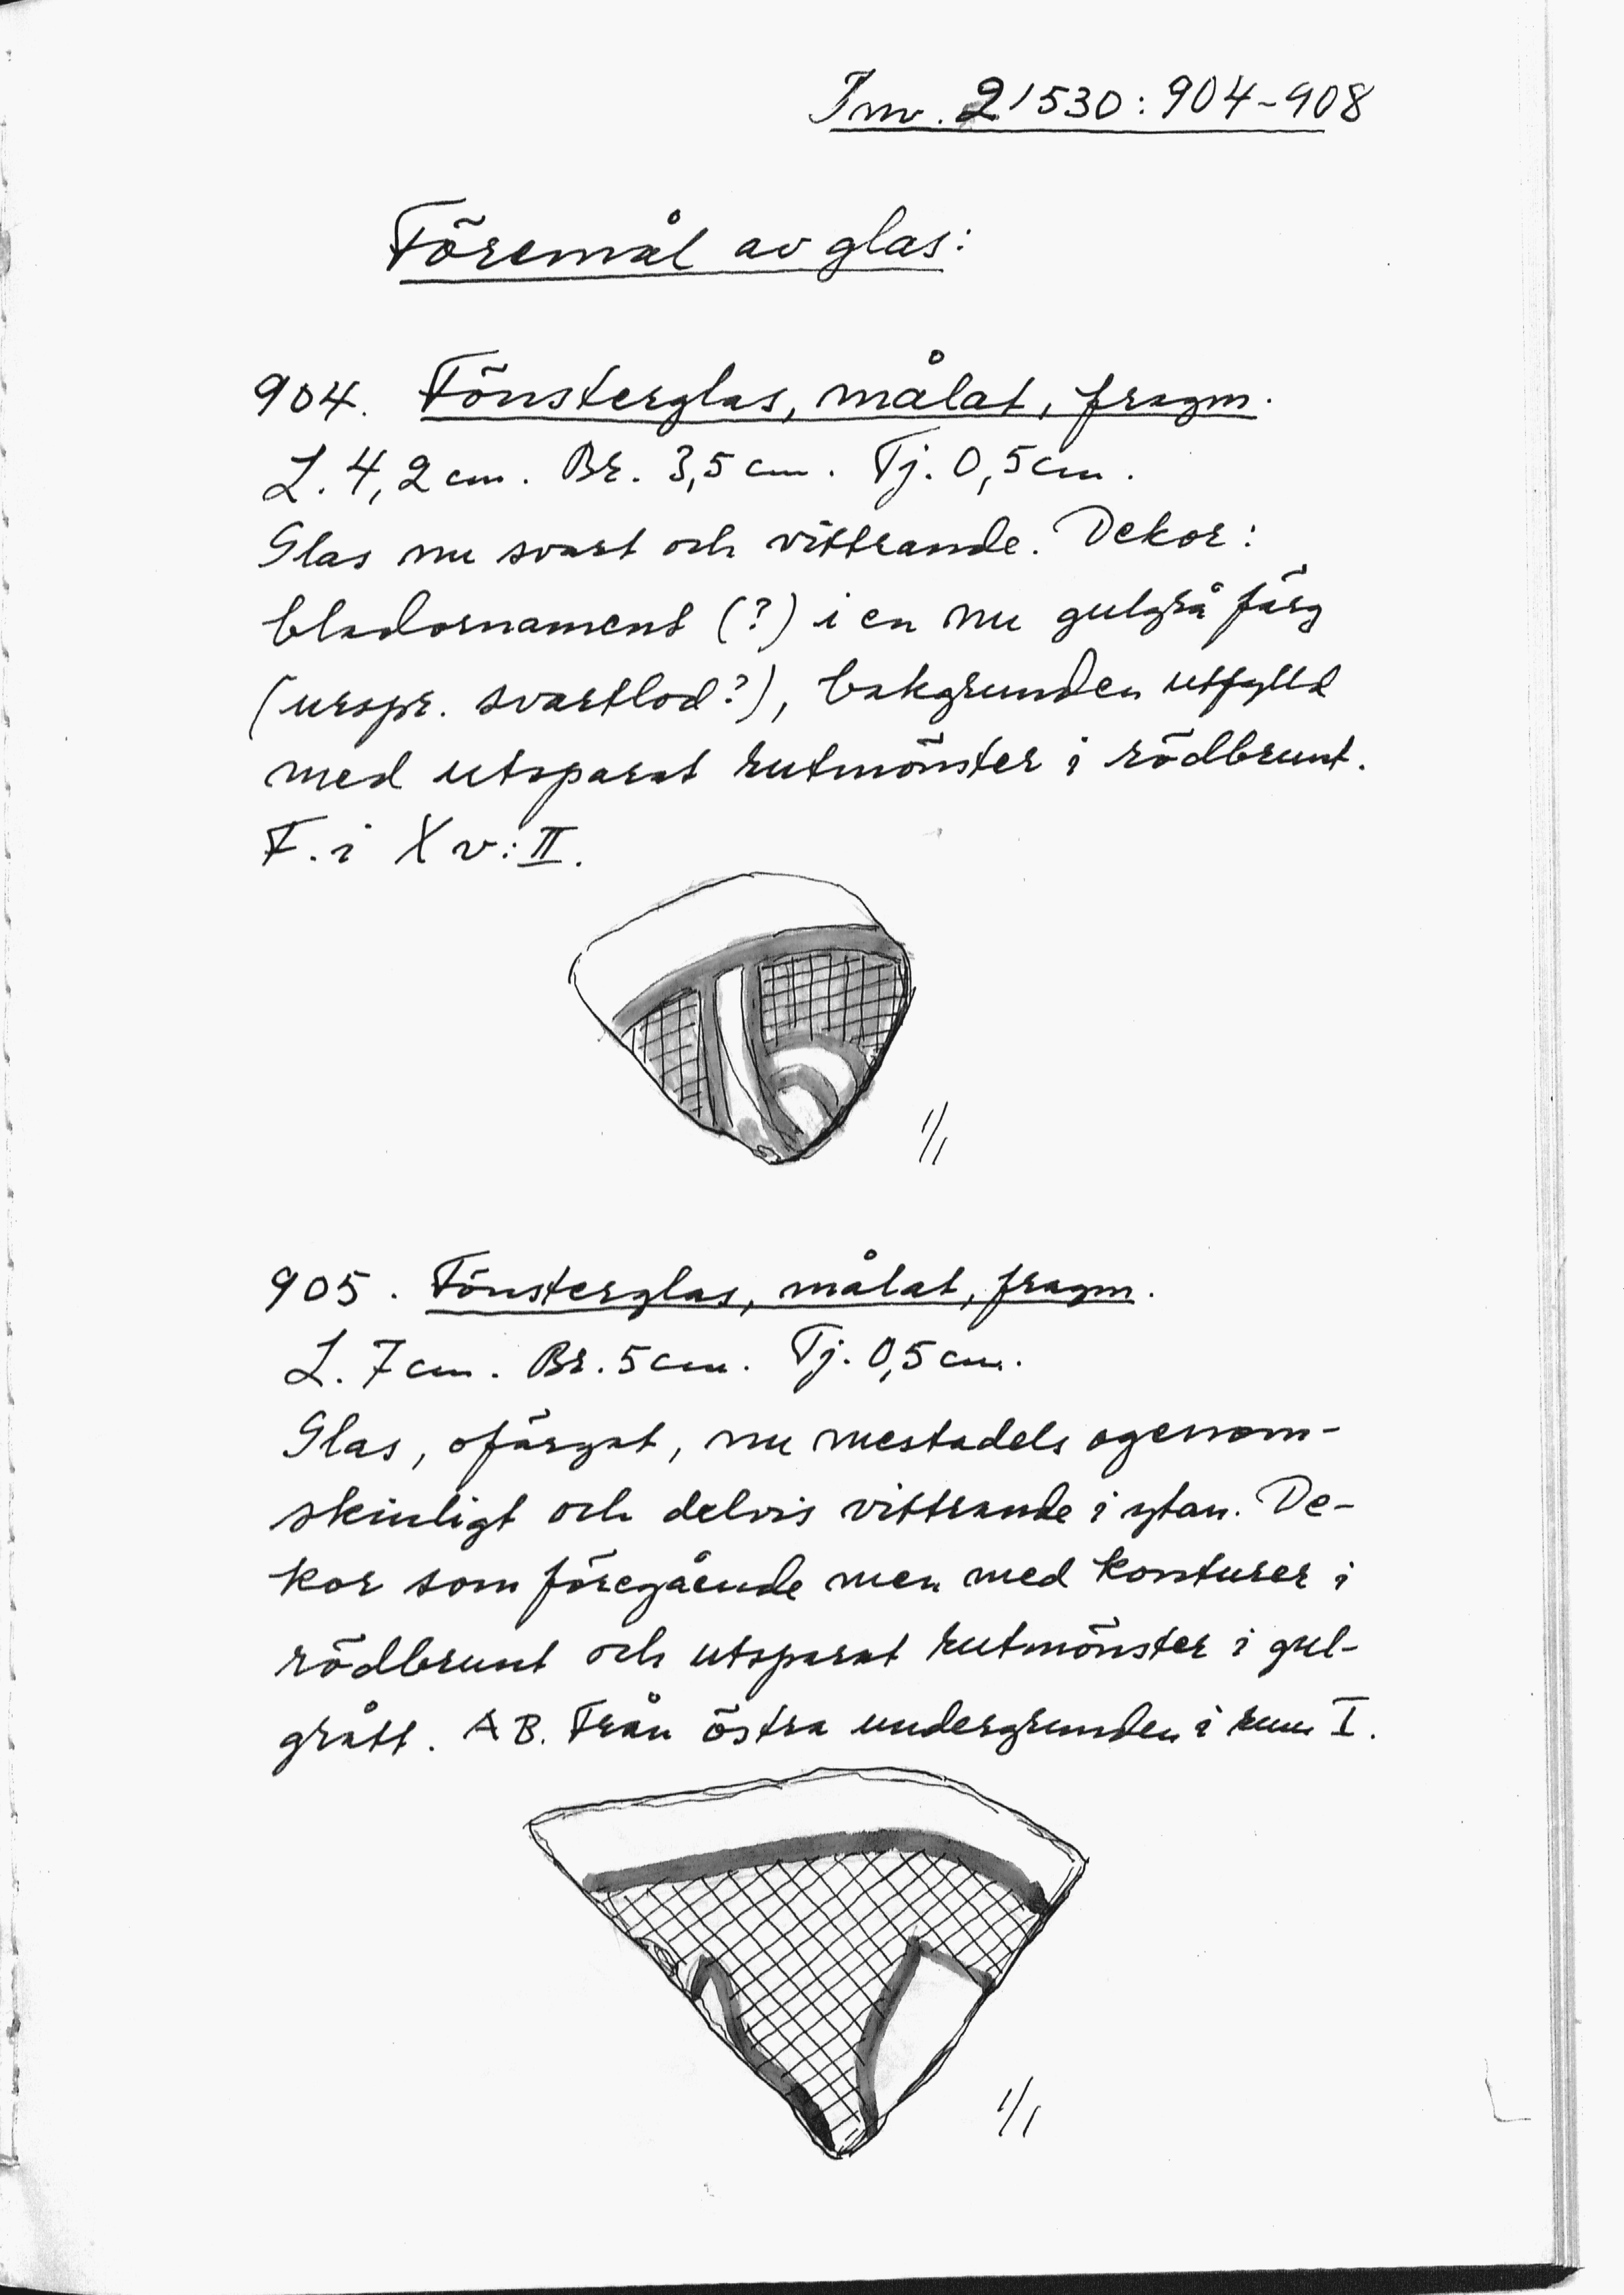 Inv. 21530:904-908
Föremål av glas:
904. Fönsterglas, målat, fragm.
L. 4,2 cm. Br. 3,5 cm. Tj. 0,5 cm.
Glas nu svart och vittrande. Dekor:
bladornament (?) i en nu gulgrå färg
(urspr. svartlod?), bakgrunden utfylld
med utsparat rutmönster i rödbrunt.
F. i X v: II.
1/1
905. Fönsterglas, målat, fragm.
L. 7 cm. Br. 5 cm. Tj. 0,5 cm.
Glas, ofärgat, nu mestadels ogenom-
skinligt och delvis vittrande i ytan. De-
kor som föregående men med konturer i
rödbrunt och utsparat rutmönster i gul-
grått. AB. Från östra undergrunden i rum I.
1/1